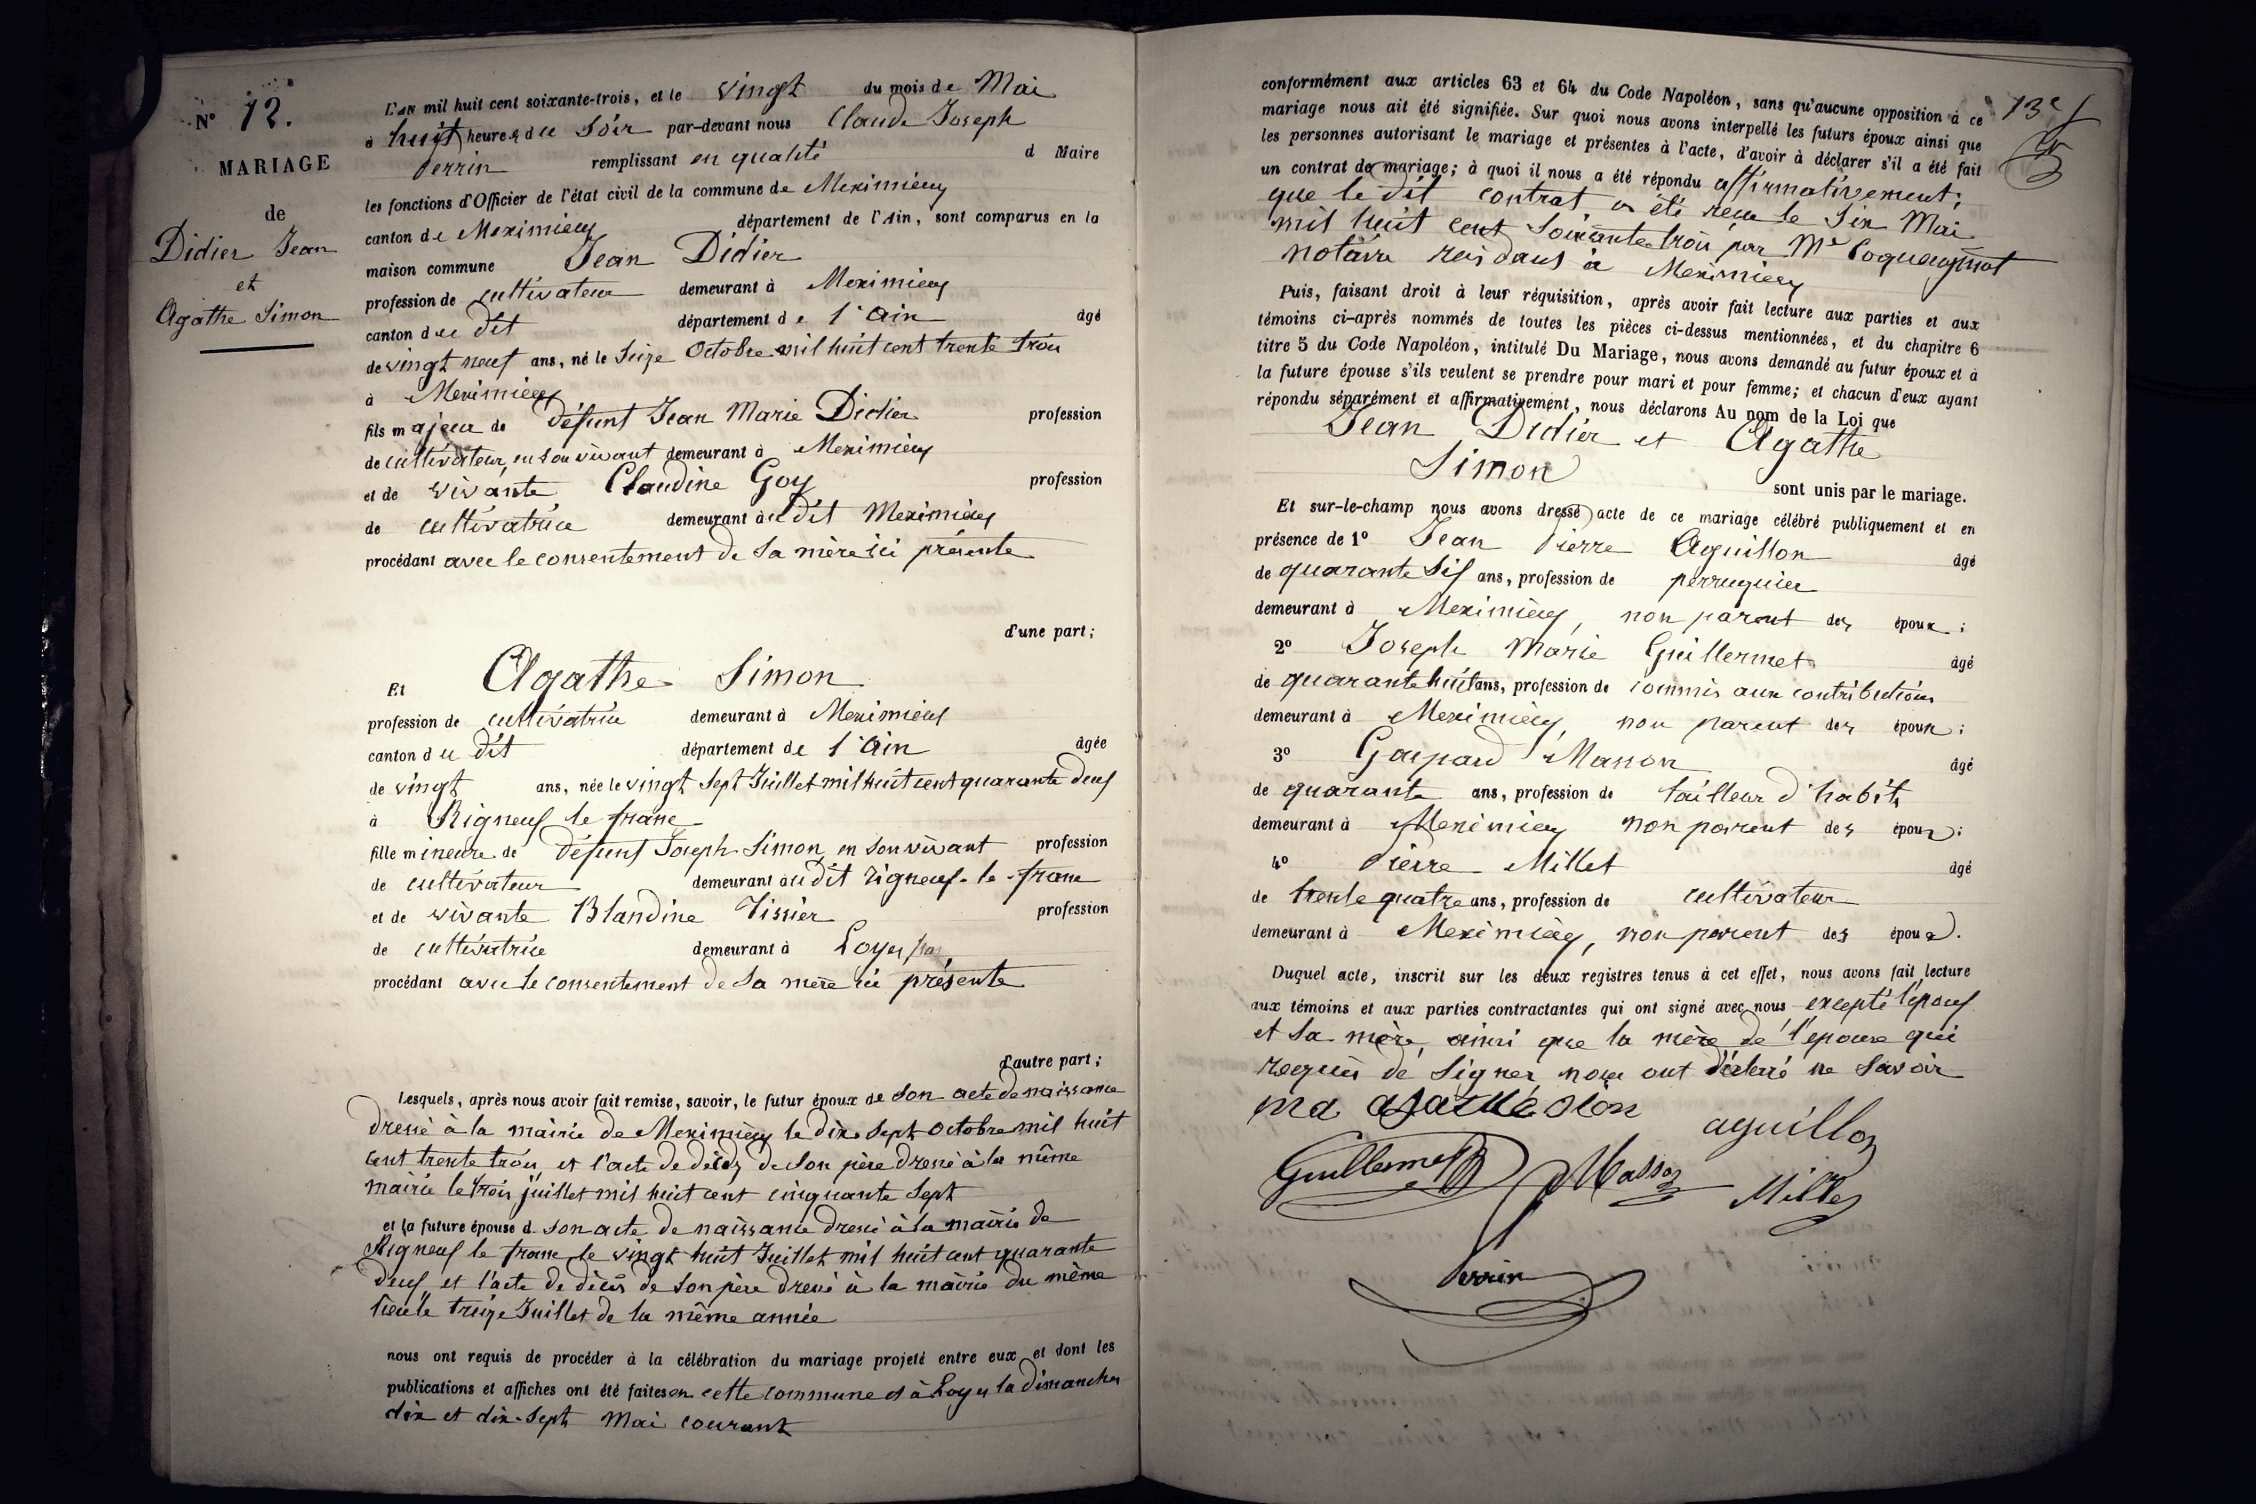 N° 12.
MARIAGE
de
Didier Jean
et
Agathe Simon
L'an mil huit cent soixante-trois, et le vingt du mois de Mai
à huit heures du Soir par-devant nous Claude Joseph
Perrin remplissant en qualité d Maire
les fonctions d'Officier de l'état civil de la commune de Meximieux
canton de Meximieux département de l'Ain, sont comparus en la
maison commune Jean Didier
profession de cultivateur demeurant à Meximieux
canton du dit département de l'Ain âgé
de vingt neuf ans, né le Seize Octobre mil huit cent trente trois
à Meximieux
fils majeur de défunt Jean Marie Didier profession
de cultivateur, en son vivant demeurant à Meximieux
et de vivante Claudine Goy profession
de cultivatrice demeurant audit Meximieux
procédant avec le consentement de sa mère ici présente
d'une part;
Et Agathe Simon
profession de cultivatrice demeurant à Meximieux
canton du dit département de l'Ain âgée
de vingt ans, née le vingt Sept Juillet mil huit cent quarante deux
à Rigneux le franc
fille mineure de défunt Joseph Simon, en son vivant profession
de cultivateur demeurant audit rigneux-le-franc
et de vivante Blandine Tissier profession
de cultivatrice demeurant à Loyes
procédant avec le consentement de sa mère ici présente
d'autre part;
Lesquels, après nous avoir fait remise, savoir, le futur époux de son acte de naissance
dressé à la mairie de Meximieux le dix Sept Octobre mil huit
cent trente trois, et l'acte de décès de son père dressé à la même
mairie le trois juillet mil huit cent cinquante Sept
et la future épouse d son acte de naissance dressé à la mairie de
Rigneux le franc le vingt huit Juillet mil huit cent quarante
deux et l'acte de décès de son père dressé à la mairie du même
lieu le treize Juillet de la même année
nous ont requis de procéder à la célébration du mariage projeté entre eux et dont les
publications et affiches ont été faites en cette commune et à Loyes les dimanches
dix et dix-Sept Mai courant
13e
conformément aux articles 63 et 64 du Code Napoléon, sans qu'aucune opposition à ce
mariage nous ait été signifiée. Sur quoi nous avons interpellé les futurs époux ainsi que
les personnes autorisant le mariage et présentes à l'acte, d'avoir à déclarer s'il a été fait
un contrat de mariage; à quoi il nous a été répondu affirmativement;
que le dit contrat a été reçu le Six Mai
mil huit cent Soixante trois par Me
notaire résidant à Meximieux
Puis, faisant droit à leur réquisition, après avoir fait lecture aux parties et aux
témoins ci-après nommés de toutes les pièces ci-dessus mentionnées, et du chapitre 6
titre 5 du Code Napoléon, intitulé Du Mariage, nous avons demandé au futur époux et à
la future épouse s'ils veulent se prendre pour mari et pour femme; et chacun d'eux ayant
répondu séparément et affirmativement, nous déclarons Au nom de la Loi que
Jean Didier et Agathe
Simon
sont unis par le mariage.
Et sur-le-champ nous avons dressé acte de ce mariage célébré publiquement et en
présence de 1° Jean Pierre Aguillon âgé
de quarante Six ans, profession de perruquier
demeurant à Meximieux, non parent des époux;
2° Joseph Marie Guillermet âgé
de quarante huit ans, profession de commis aux contributions
demeurant à Meximieux, non parent des époux;
3° Gaspard Masson âgé
de quarante ans, profession de tailleur d'habits
demeurant à Meximieux non parent des époux;
4° Pierre Millet âgé
de trente quatre ans, profession de cultivateur
demeurant à Meximieux, non parent des époux.
Duquel acte, inscrit sur les deux registres tenus à cet effet, nous avons fait lecture
aux témoins et aux parties contractantes qui ont signé avec nous excepté l'époux
et sa mère, ainsi que la mère de l'épouse qui
requis de signer nous ont déclaré ne savoir
aguillon
Guillermet Masson Millet
Perrin